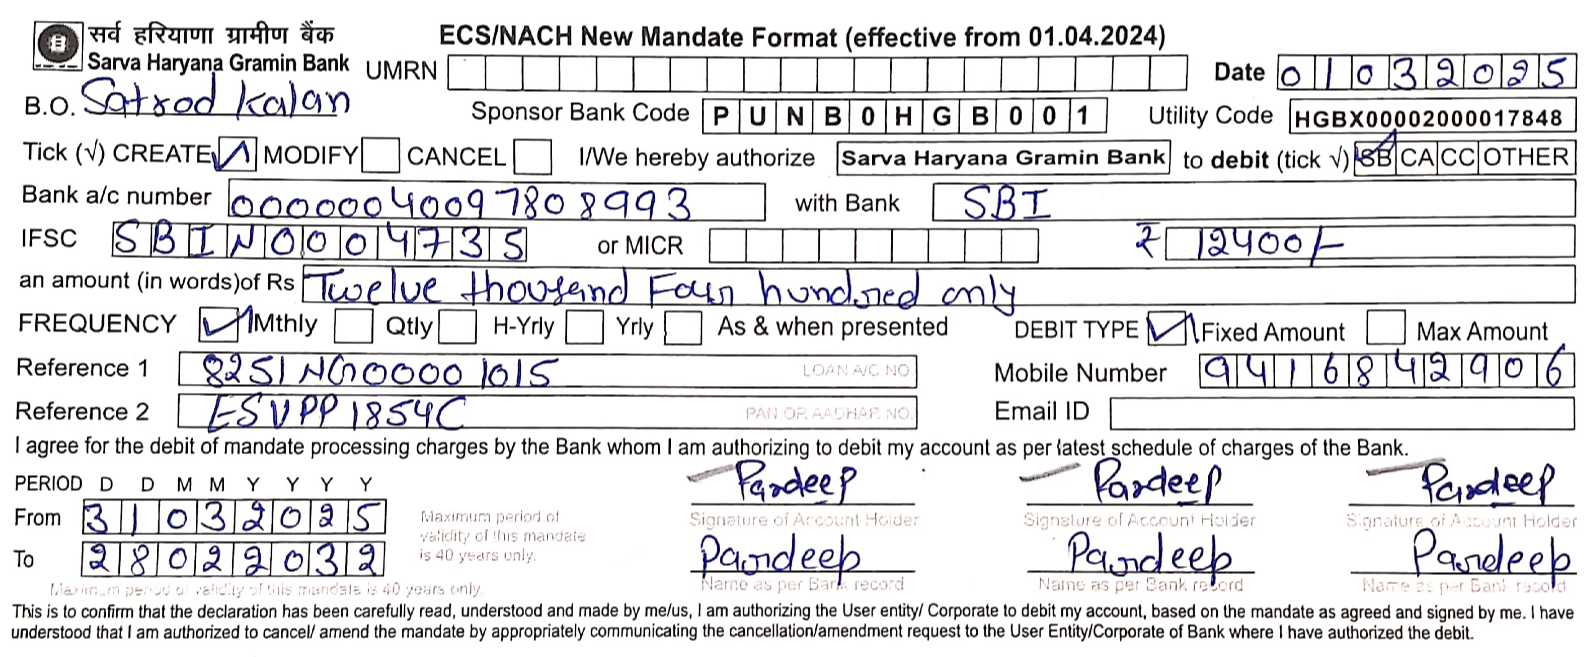 सर्व हरियाणा ग्रामीण बैंक
Sarva Haryana Gramin Bank
ECS/NACH New Mandate Format (effective from 01.04.2024)
UMRN Date 01032025
B.O. Satrod Kalan
Sponsor Bank Code PUNB0HGB001 Utility Code HGBX00002000017848
Tick (√) CREATE ✓ MODIFY CANCEL I/We hereby authorize Sarva Haryana Gramin Bank to debit (tick √) SB CA CC OTHER
Bank a/c number 00000040097808993 with Bank SBI
IFSC SBIN0004735 or MICR ₹ 12400/-
an amount (in words)of Rs Twelve thousand Four hundred only
FREQUENCY ✓ Mthly Qtly H-Yrly Yrly As & when presented DEBIT TYPE ✓ Fixed Amount Max Amount
Reference 1 8251NG00001015 LOAN A/C NO Mobile Number 9416842906
Reference 2 ESVPP1854C PAN OR AADHAR NO. Email ID
I agree for the debit of mandate processing charges by the Bank whom I am authorizing to debit my account as per latest schedule of charges of the Bank.
PERIOD D D M M Y Y Y Y Pardeep Pardeep Pardeep
From 31032025 Maximum period of validity of this mandate is 40 years only. Signature of Account Holder Signature of Account Holder Signature of Account Holder
To 28022032 Pardeep Pardeep Pardeep
Maximum period of validity of this mandate is 40 years only. Name as per Bank record Name as per Bank record Name as per Bank record
This is to confirm that the declaration has been carefully read, understood and made by me/us, I am authorizing the User entity/ Corporate to debit my account, based on the mandate as agreed and signed by me. I have
understood that I am authorized to cancel/ amend the mandate by appropriately communicating the cancellation/amendment request to the User Entity/Corporate of Bank where I have authorized the debit.